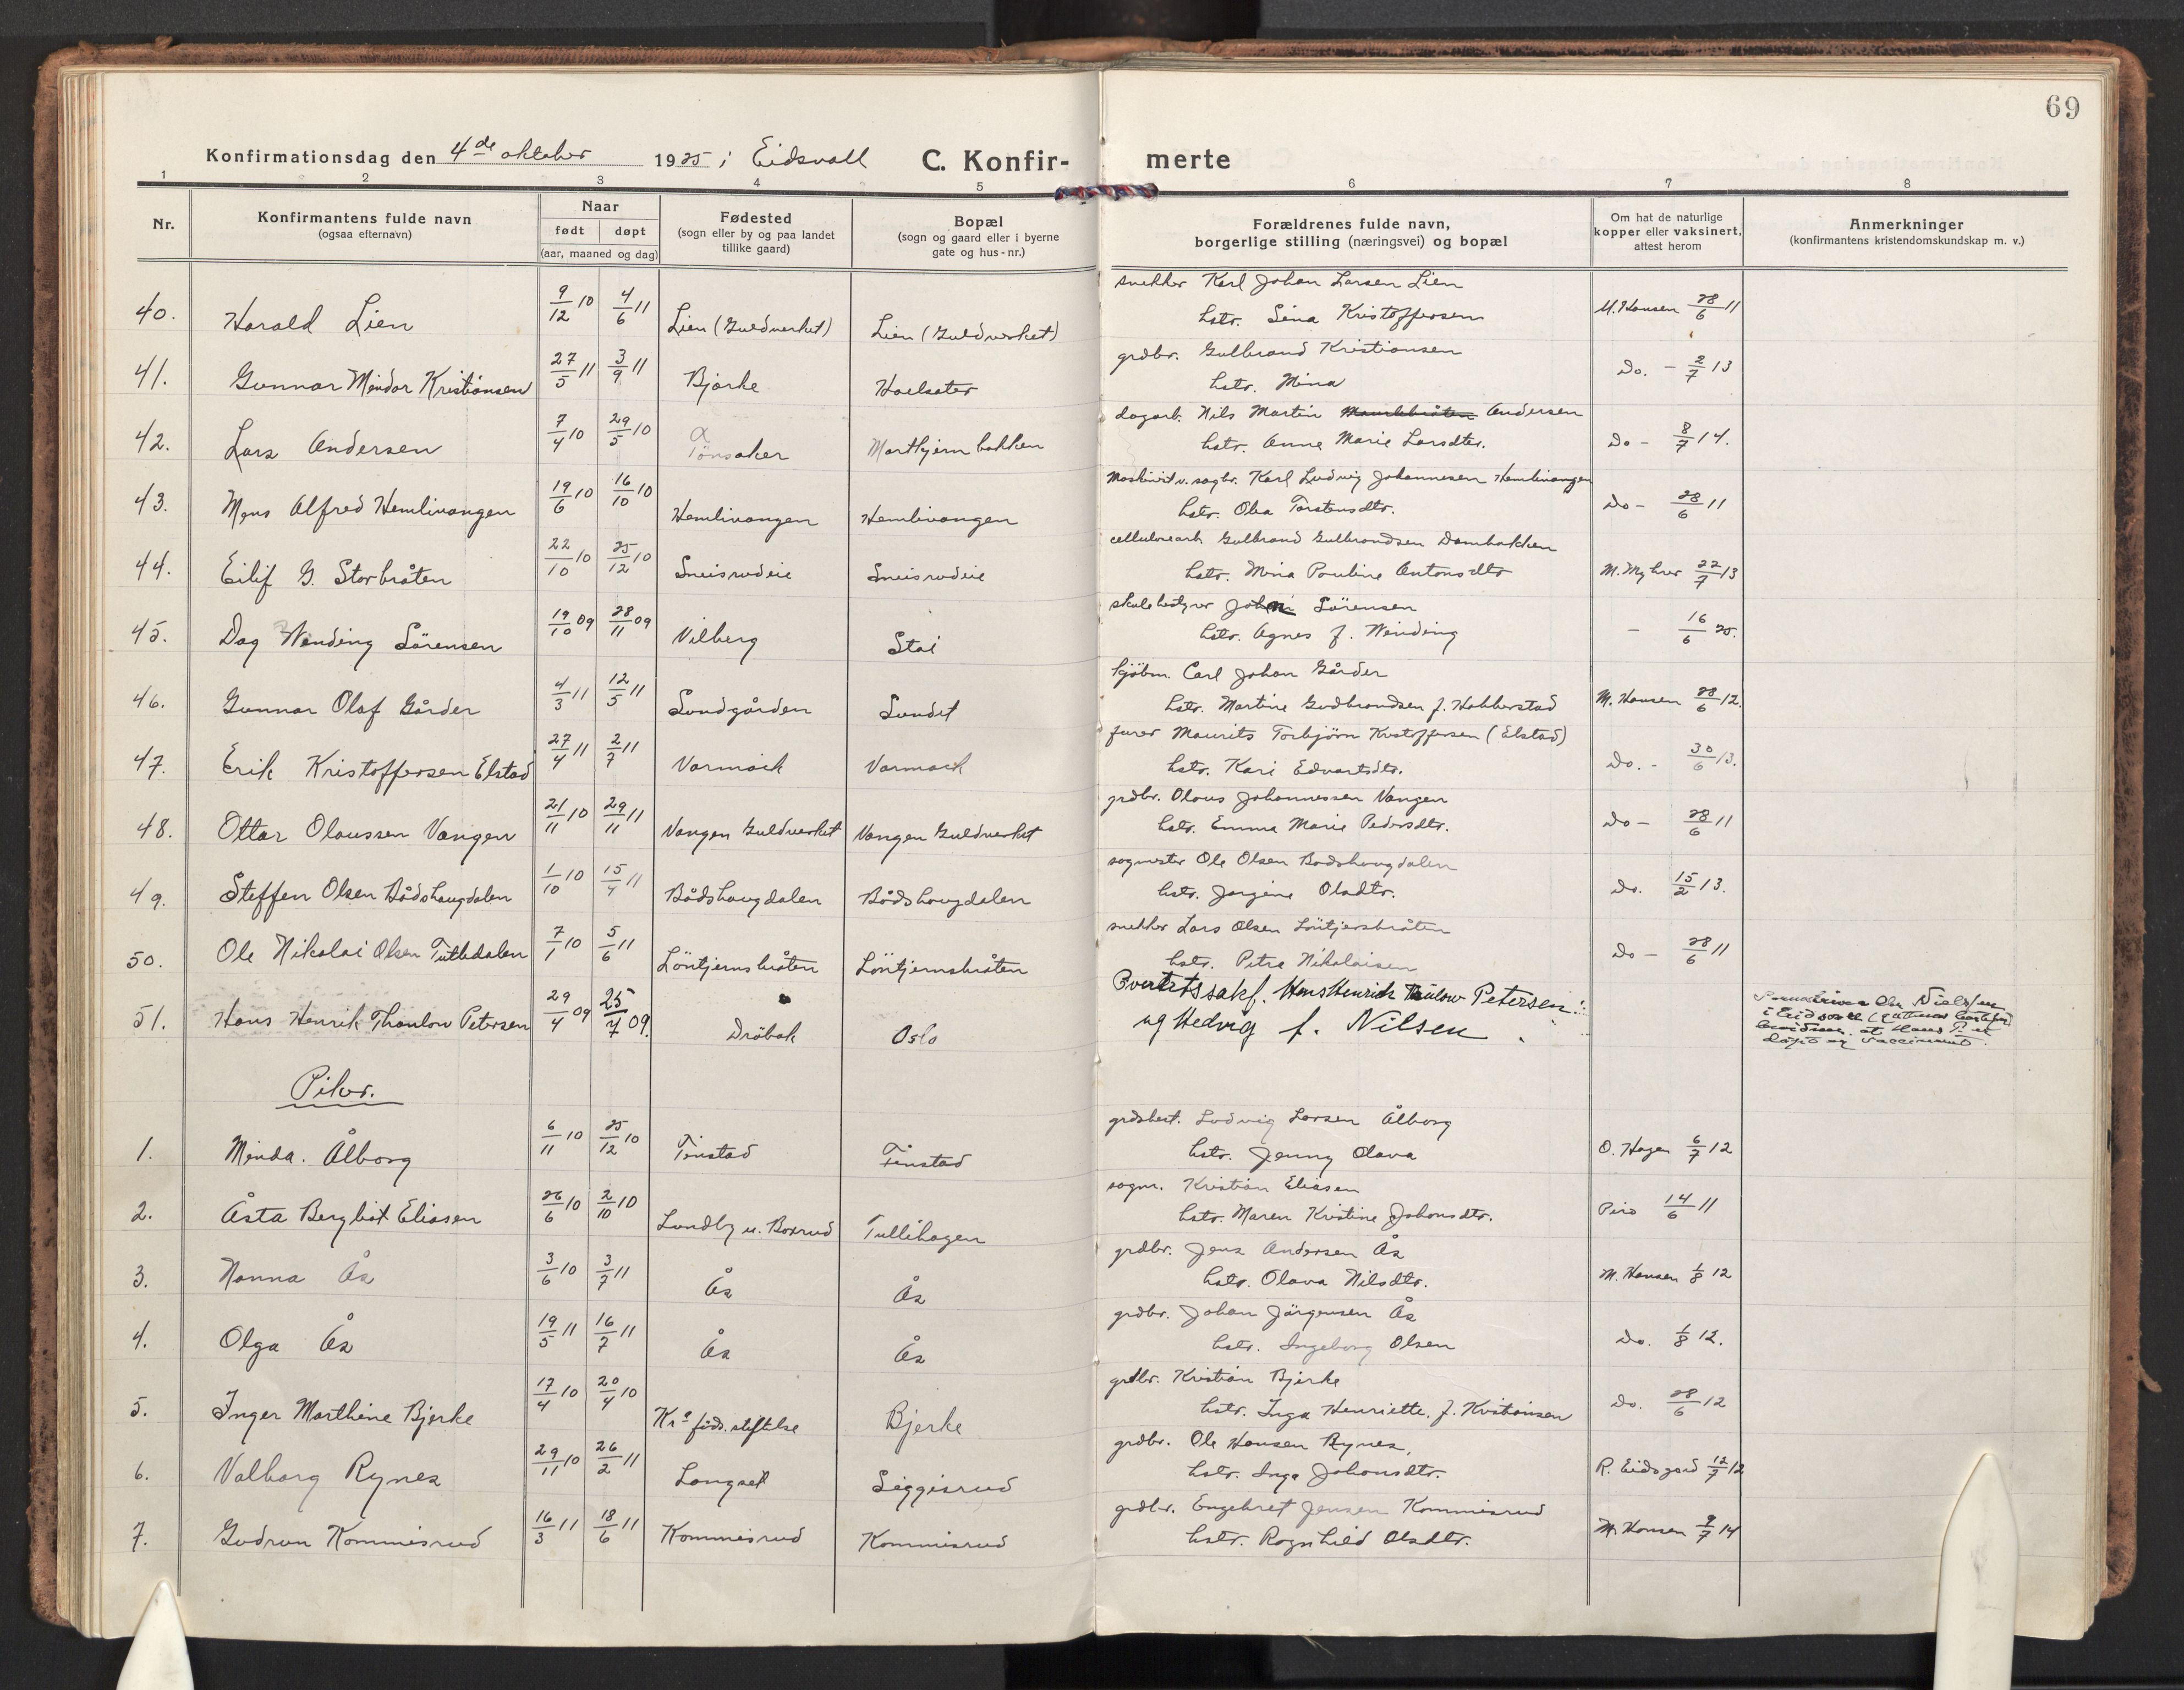 69
Konfirmationsdag den 4de oktober 1925 i Eidsvoll C. Konfir- merte
1 2 3 4 5 6 7 8
Nr.
Konfirmantens fulde navn
(ogsaa efternavn)
Naar
født døpt
(aar, maaned og dag)
Fødested
(sogn eller by og paa landet
tillike gaard)
Bopæl
(sogn og gaard eller i byerne
gate og hus-nr.)
Forældrenes fulde navn,
borgerlige stilling (næringsvei) og bopæl
Om hat de naturlige
kopper eller vaksinert,
attest herom
Anmerkninger
(konfirmantens kristendomskundskap m. v.)
snekker Karl Johan Larsen Lien
40. Harald Lien 9/12 10 4/6 11 Lien (Guldverket) Lien (Guldverket) hstr. Sina Kristoffersen M. Hansen 28/6 11
grdbr. Gulbrand Kristiansen
41. Gunnar Mindor Kristiansen 27/5 11 3/9 11 Bjørke Hoelsæter hstr. Mina Do. - 2/7 13
dagarb. Nils Martin Andersen
42. Lars Andersen 7/4 10 29/5 10 Tønsaker Martkjernbakken hstr. Anne Marie Larsdtr. Do - 8/7 14.
Maskinist v. sagbr. Karl Ludvig Johannesen Hemlivangen
43. Mons Alfred Hemlivangen 19/6 10 16/10 10 Hemlivangen Hemlivangen hstr. Olea Torstensdtr. Do - 28/6 11
cellulosearb. Gulbrand Gulbrandsen Dambakken
44. Eilif G. Storbråten 22/10 10 25/12 10 Sneisrudeie Sneisrudeie hstr. Mina Pauline Antonsdtr M. Myhrer 22/7 13
skolebestyrer John Sørensen
45. Dag Wending Sörensen 19/10 09 28/11 09 Vilberg Stai hstr. Agnes f. Wending - 16/6 25.
kjøbm. Carl Johan Gårder
46. Gunnar Olaf Gårder 4/3 11 12/5 11 Sundgården Sundet hstr. Martine Gudbrandsen f. Habberstad M. Hansen 28/6 12.
furer Maurits Torbjørn Kristoffersen (Elstad)
47. Erik Kristoffersen Elstad 27/4 11 2/7 11 Vormock Vormock hstr. Kari Edvartsdtr. Do. - 30/6 13.
grdbr. Olaus Johannessen Vangen
48. Ottar Olaussen Vangen 21/11 10 29/11 11 Vangen Guldverket Vangen Guldverket hstr. Emma Marie Pedersdtr. Do - 28/6 11
sagmester Ole Olsen Bodshaugdalen
49. Steffen Olsen Bådshaugdalen 1/10 10 15/4 11 Bådshaugdalen Bådshaugdalen hstr. Jørgine Olsdtr. Do. 15/2 13.
snekker Lars Olsen Löntjernsbråten
50. Ole Nikolai Olsen Tutledalen 7/1 10 5/6 11 Löntjernsbråten Löntjernsbråten hstr. Petra Nikolaisen Do - 28/6 11
Overretssakf. Hans Henrik Thaulow Petersen
51. Hans Henrik Thaulow Petersen 29/4 09 25/7 09. Dröbak Oslo og Hedvig f. Nilsen
Nielsen
i Eidsvoll
at Hans P. er
døpt og vaccineret
Piker.
grdbest. Ludvig Larsen Ålborg
1. Minda. Ålborg 6/11 10 25/12 10 Finstad Finstad hstr. Jenny Olava O. Hagen 6/7 12
sagm. Kristian Eliasen
2. Åsta Bergliot Eliasen 26/6 10 2/10 10 Lundby u. Boxrud Tullihagen hstr. Maren Kristine Johansdtr. Piro 14/6 11
grdbr. Jens Andersen Ås
3. Nanna Ås 3/6 10 3/7 11 Ås Ås hstr. Olava Nilsdtr. M. Hansen 1/8 12
grdbr. Johan Jörgensen Ås
4. Olga Ås 19/5 11 16/7 11 Ås Ås hstr. Ingeborg Olsen Do. 1/8 12.
grdbr. Kristian Bjerke
5. Inger Marthine Bjerke 17/4 10 20/4 10 Kra føds. stiftelse Bjerke hstr. Inga Henriette. f. Kristiansen Do. 28/6 12
grdbr. Ole Hansen Rynes,
6. Valborg Rynes 29/11 10 26/2 11 Langset Siggisrud hstr. Inga Johansdtr. R. Eidsgard 12/7 12
grdbr. Engebret Jensen Kommisrud
7. Gudrun Kommisrud 16/3 11 18/6 11 Kommisrud Kommisrud hstr. Ragnhild Olsdtr. M. Hansen 9/7 14